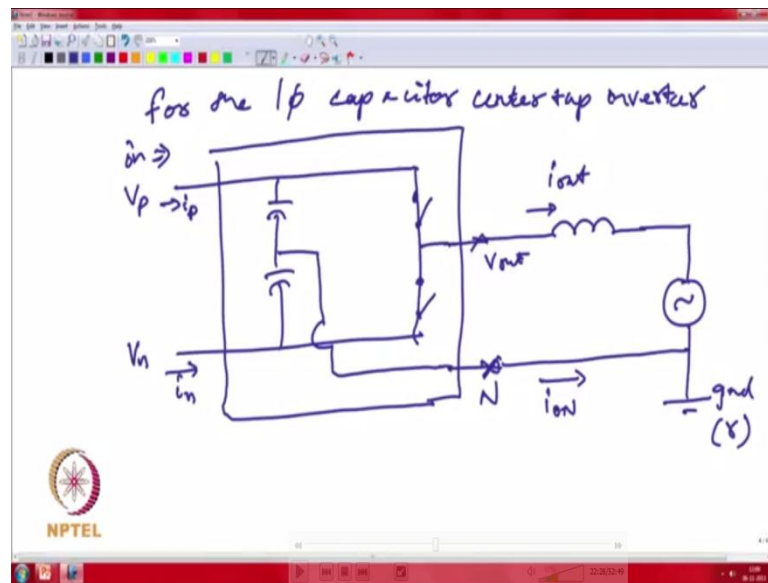 for the 1φ capacitor center tap inverter
in ⇒
Vp → ip
iout
Vout
Vn
in
N
ioN
gnd
(r)
NPTEL
22:28/52:46